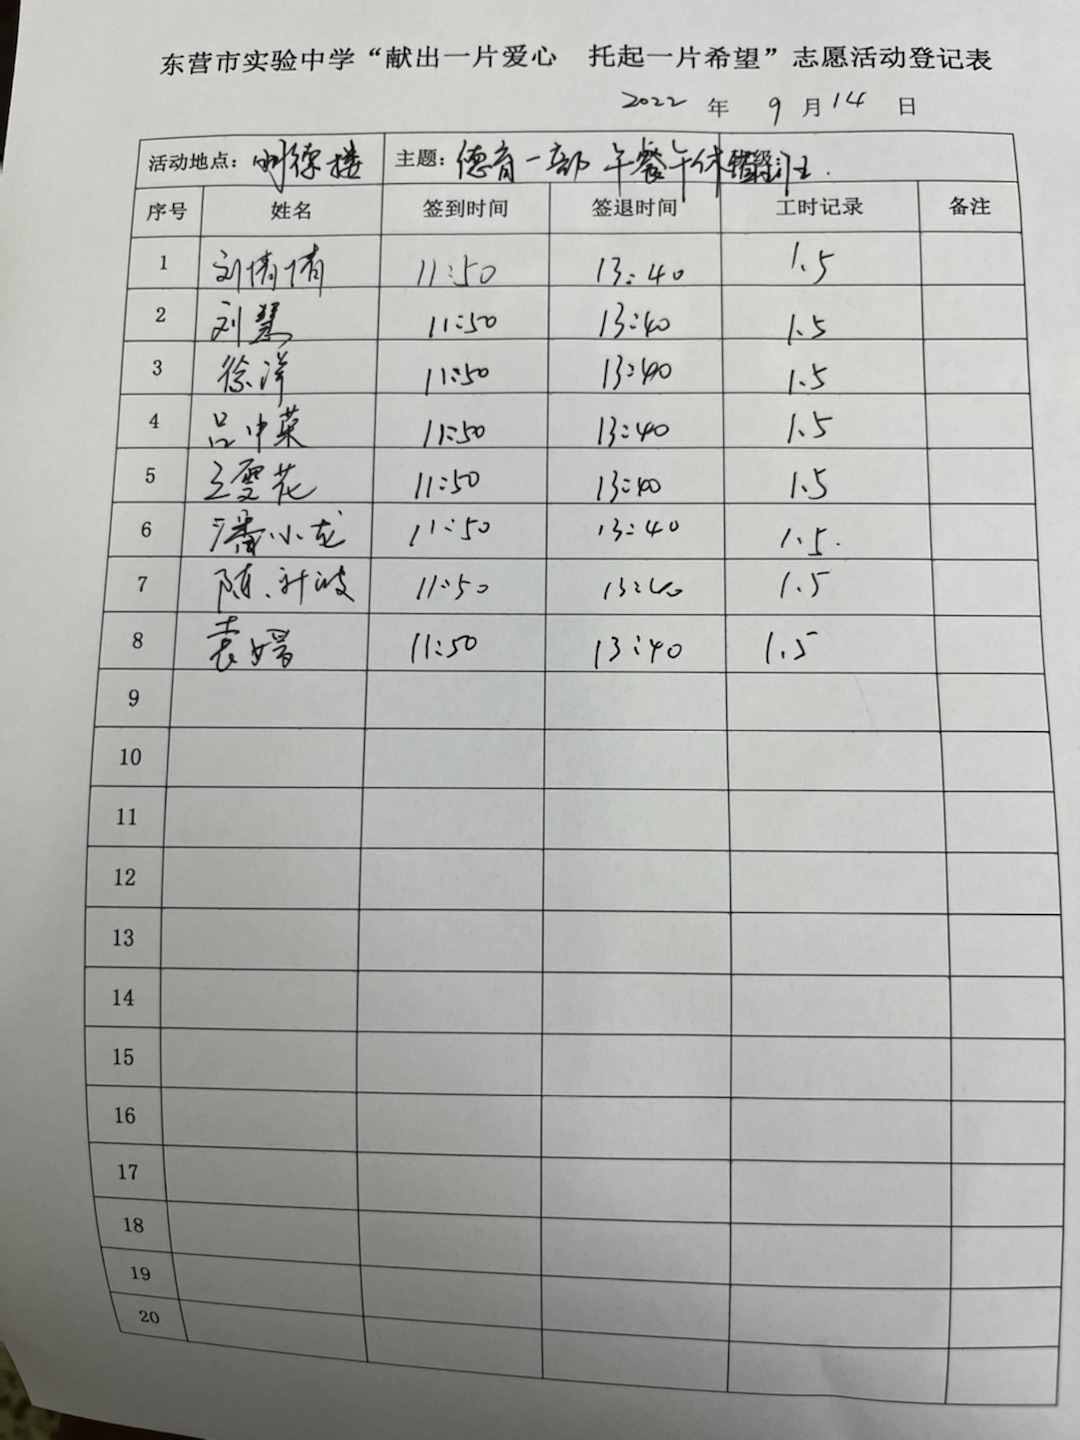 东营市实验中学“献出一片爱心 托起一片希望”志愿活动登记表
2022 年 9 月 14 日
活动地点: 明德楼 主题: 德育一部 午餐午休
序号 姓名 签到时间 签退时间 工时记录 备注
1 刘倩倩 11:50 13:40 1.5
2 刘慧 11:50 13:40 1.5
3 徐洋 11:50 13:40 1.5
4 吕中英 11:50 13:40 1.5
5 王雪花 11:50 13:40 1.5
6 潘小龙 11:50 13:40 1.5.
7 11:50 13:40 1.5
8 袁媛 11:50 13:40 1.5
9
10
11
12
13
14
15
16
17
18
19
20